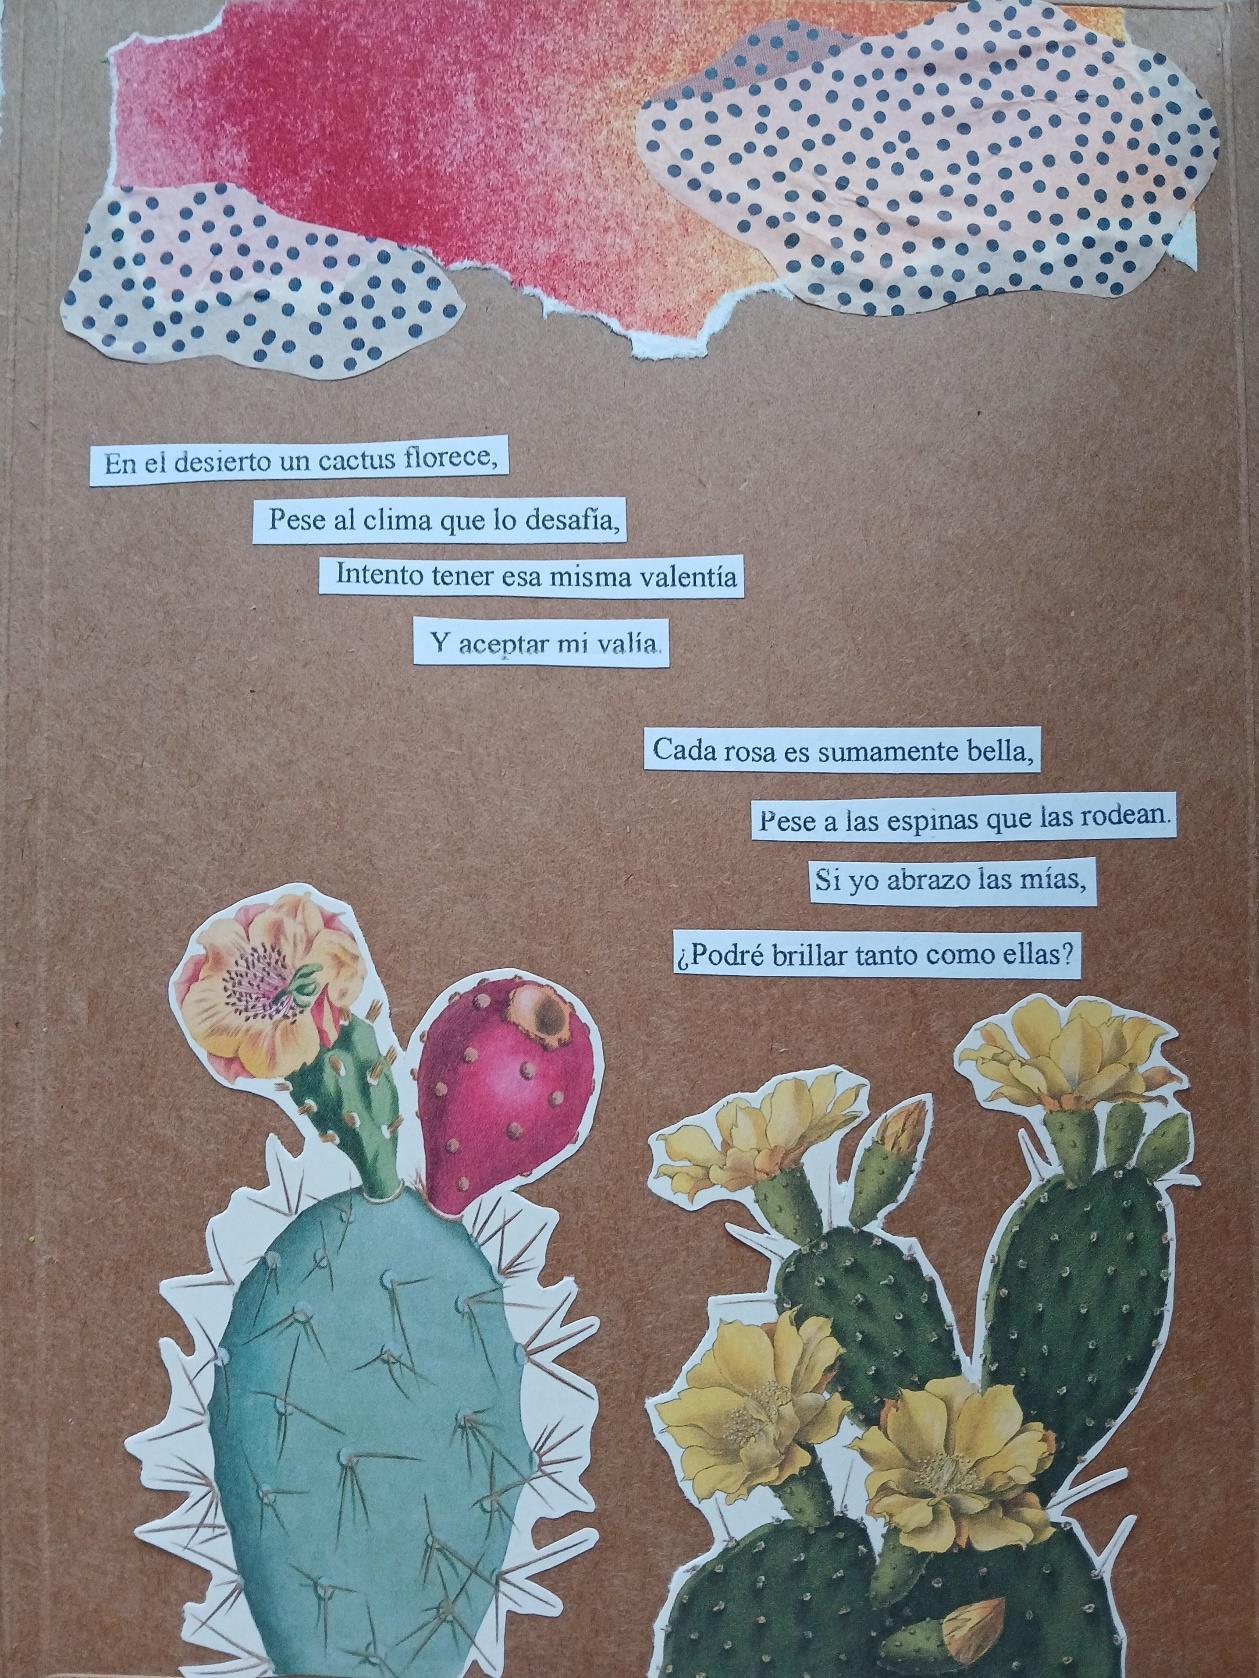 En el desierto un cactus florece,
Pese al clima que lo desafía,
Intento tener esa misma valentía
Y aceptar mi valía.
Cada rosa es sumamente bella,
Pese a las espinas que las rodean.
Si yo abrazo las mías,
¿Podré brillar tanto como ellas?